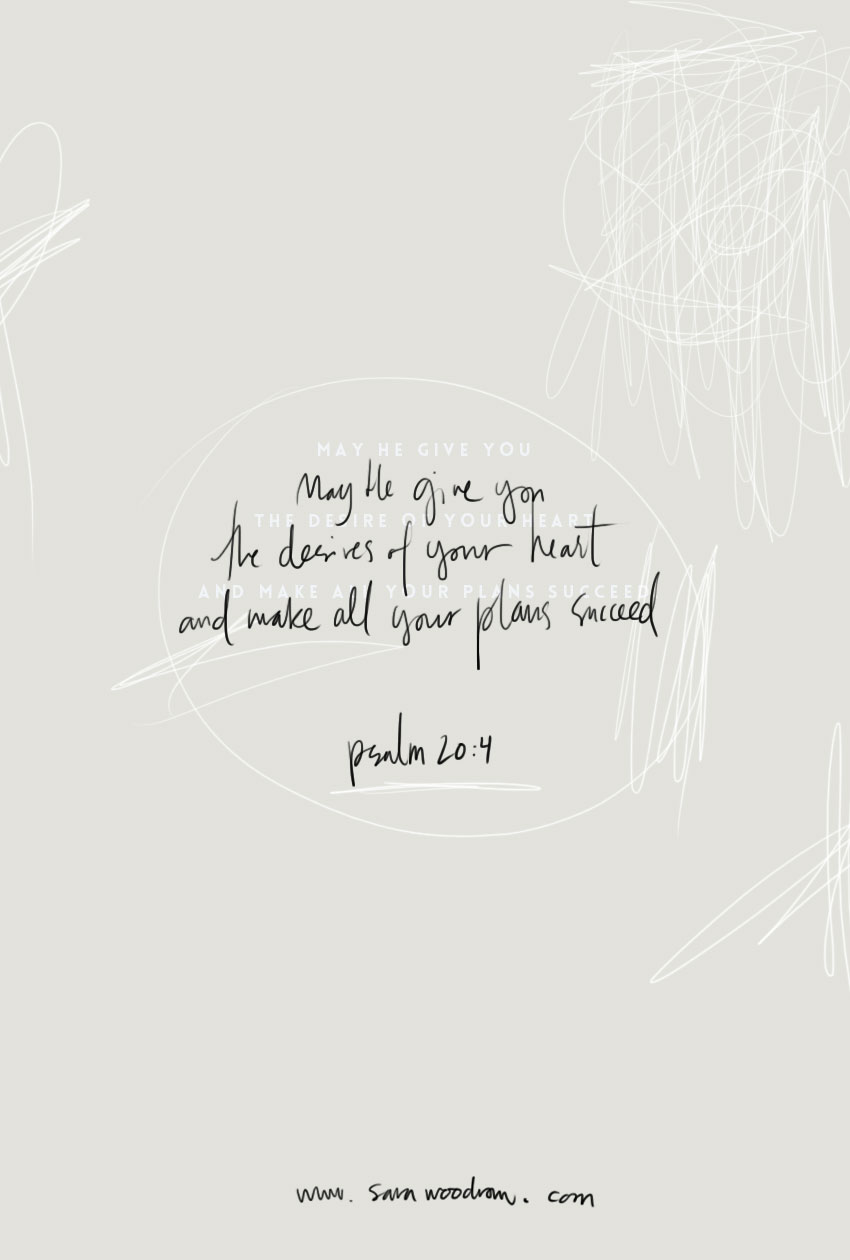 MAY HE GIVE YOU
May He give you
THE DESIRE OF YOUR HEART
the desires of your heart
AND MAKE ALL YOUR PLANS SUCCEED
and make all your plans succeed
psalm 20:4
www. sarawoodrow. com